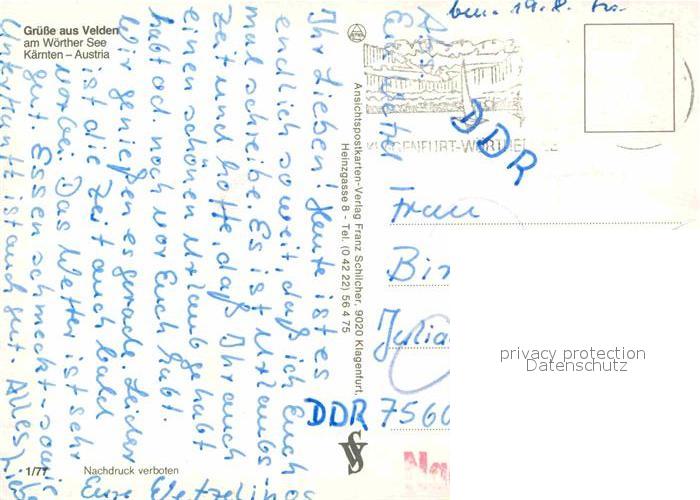 Grüße aus Velden
am Wörther See
Kärnten – Austria
ben. 19.8.
Ihr Lieben! Heute ist es
endlich soweit, daß ich Euch
mal schreibe. Es ist Urlaubs-
zeit und hoffe, daß Ihr auch
einen schönen Urlaub gehabt
habt od noch vor Euch habt.
Wir genießen es gerade. Leider
ist die Zeit auch bald
vorbei. Das Wetter ist sehr
gut. Essen schmeckt – sowie
Unterkunft ist auch gut. Alles Liebe
Eure
Ansichtspostkarten-Verlag Franz Schilcher, 9020 Klagenfurt,
Heinzgasse 8 - Tel. (0 42 22) 56 4 75
KLAGENFURT-WÖRTHER
DDR
Frau
Bir
Julia
DDR 7560
1/77
Nachdruck verboten
privacy protection
Datenschutz